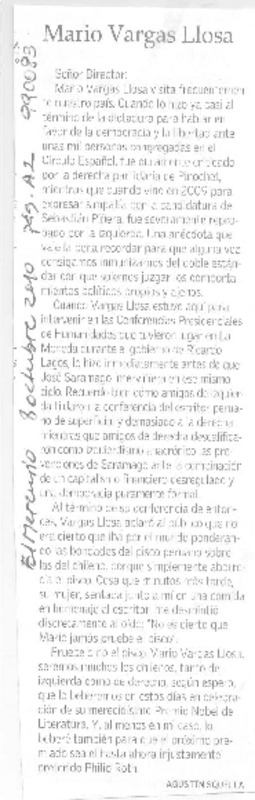 Mario Vargas Llosa
Señor Director:
Mario Vargas Llosa visita frecuentemen-
te nuestro país. Cuando lo hizo ya casi al
término de la dictadura para hablar en
favor de la democracia y la libertad ante
unas mil personas congregadas en el
Círculo Español, fue duramente criticado
por la derecha partidaria de Pinochet,
mientras que cuando vino en 2009 para
expresar simpatía por la candidatura de
Sebastián Piñera, fue severamente repro-
bado por la izquierda. Una anécdota que
vale la pena recordar para que alguna vez
consigamos inmunizarnos del doble están-
dar con que solemos juzgar los comporta-
mientos políticos propios y ajenos.
Cuando Vargas Llosa estuvo aquí para
intervenir en las Conferencias Presidenciales
de Humanidades que tuvieron lugar en La
Moneda durante el gobierno de Ricardo
Lagos, lo hizo inmediatamente antes de que
José Saramago interviniera en ese mismo
ciclo. Recuerdo bien cómo amigos de izquier-
da tildaron la conferencia del escritor perua-
no de superficial y demasiado a la derecha
mientras que amigos de derecha descalifica-
ron como izquierdismo anacrónico las pre-
venciones de Saramago ante la combinación
de un capitalismo financiero desregulado y
una democracia puramente formal.
Al término de su conferencia de enton-
ces, Vargas Llosa aclaró al público que no
era cierto que iba por el mundo ponderan-
do las bondades del pisco peruano sobre
las del chileno, porque simplemente aborre-
cía el pisco. Cosa que minutos más tarde,
su mujer, sentada junto a mí en una comida
en homenaje al escritor, me desmintió
discretamente al oído: "No es cierto que
Mario jamás pruebe el pisco".
Pruebe o no el pisco Mario Vargas Llosa,
seremos muchos los chilenos, tanto de
izquierda como de derecha, según espero,
que lo beberemos en estos días en celebra-
ción de su merecidísimo Premio Nobel de
Literatura. Y, al menos en mi caso, lo
beberé también para que el próximo pre-
miado sea el hasta ahora injustamente
preterido Philip Roth.
AGUSTÍN SQUELLA
El Mercurio 8 octubre 2010 pág. A2 990083